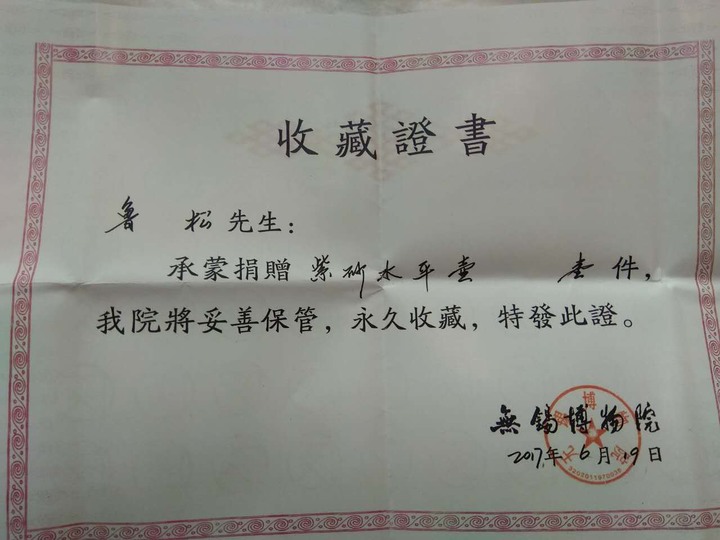 收藏證書
魯 松先生：
承蒙捐贈紫砂水平壶 壹件，
我院將妥善保管，永久收藏，特發此證。
無錫博物院
2017年6月19日